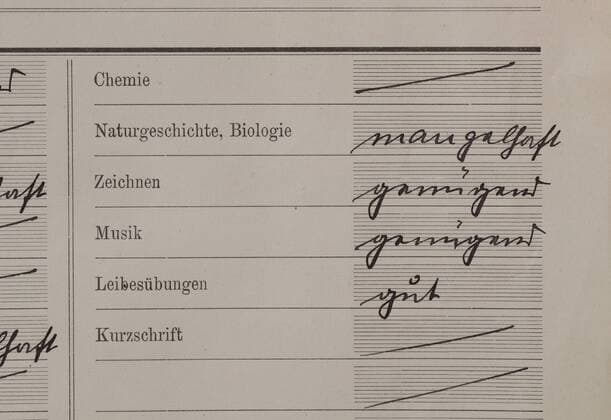 Chemie
Naturgeschichte, Biologie mangelhaft
haft Zeichnen genügend
Musik genügend
Leibesübungen gut
Kurzschrift
haft